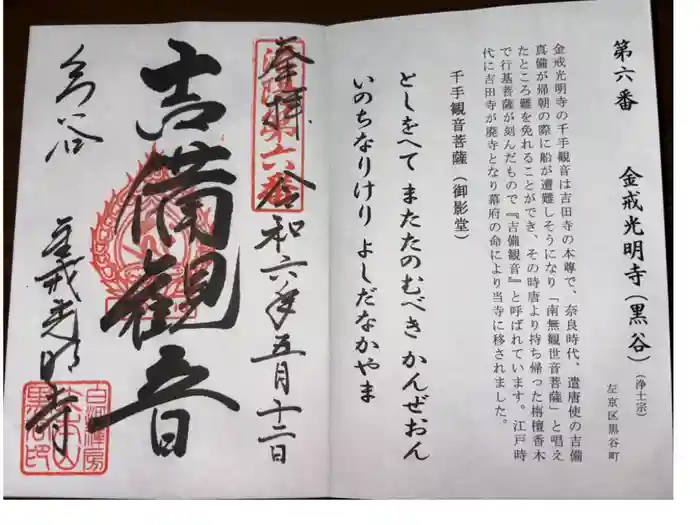 第六番　金戒光明寺（黒谷）（浄土宗）
左京区黒谷町
金戒光明寺の千手観音は吉田寺の本尊で、奈良時代、遣唐使の吉備
真備が帰朝の際に船が遭難しそうになり「南無観世音菩薩」と唱え
たところ難を免れることができ、その時唐より持ち帰った栴檀香木
で行基菩薩が刻んだもので『吉備観音』と呼ばれています。江戸時
代に吉田寺が廃寺となり幕府の命により当寺に移されました。
千手観音菩薩（御影堂）
としをへて またたのむべき かんぜおん
いのちなりけり よしだなかやま
奉拝 令和六年五月十二日
第六番
吉備観音
金戒光明寺
白河禅房